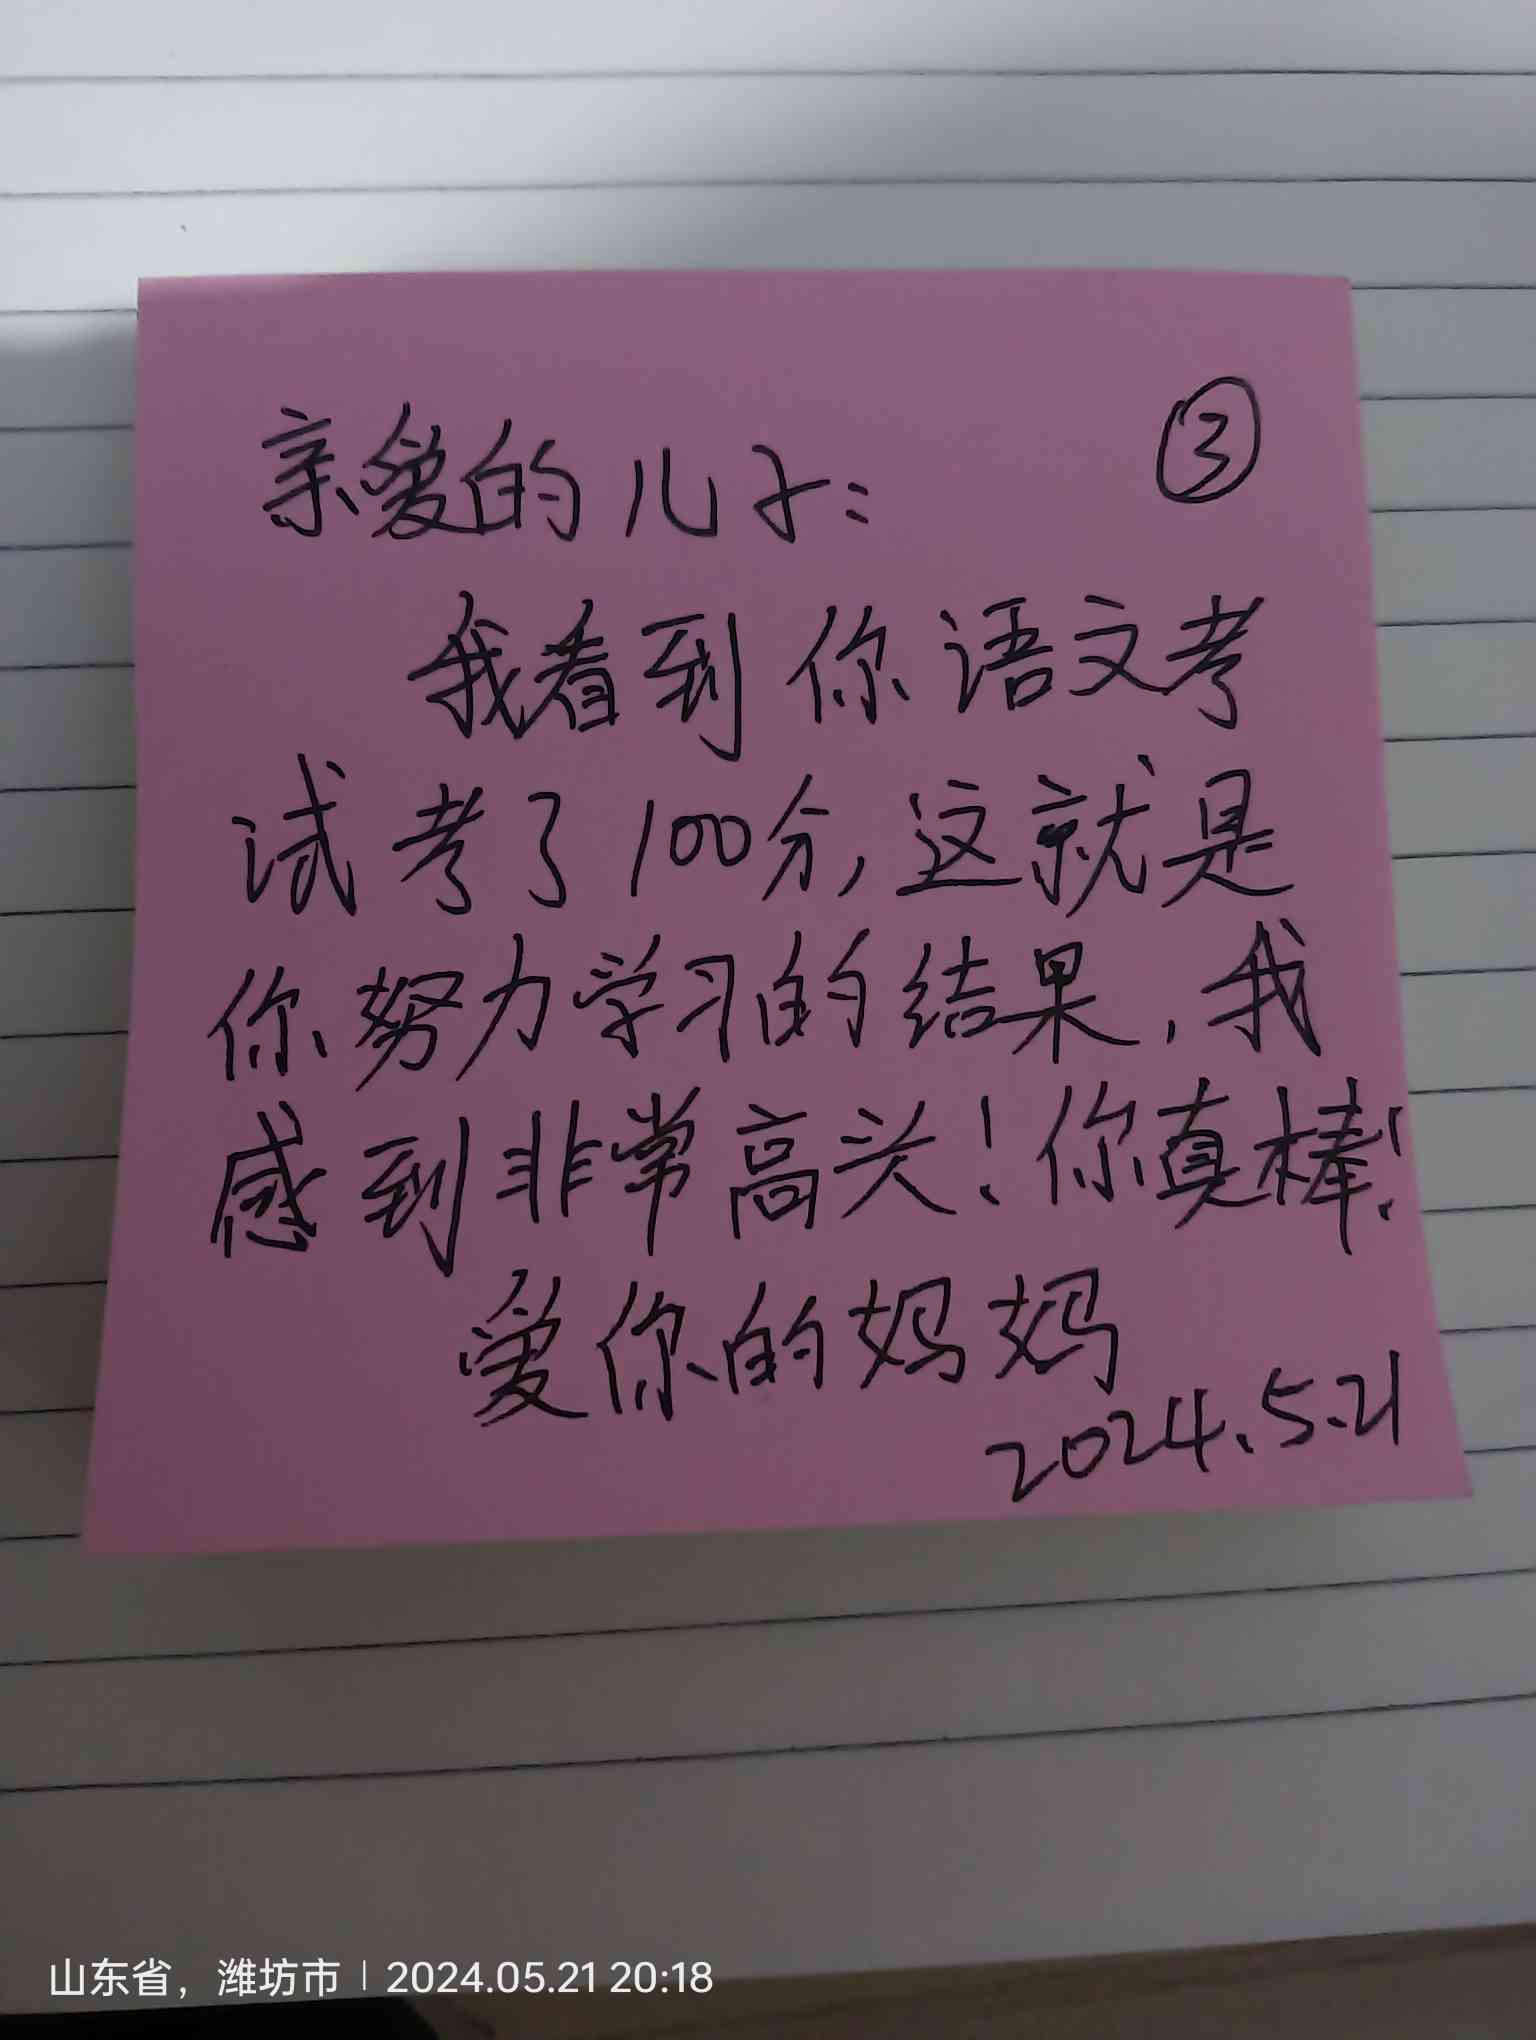 亲爱的儿子: ③
我看到你语文考
试考了100分,这就是
你努力学习的结果,我
感到非常高兴!你真棒!
爱你的妈妈
2024.5.21
山东省，潍坊市 | 2024.05.21 20:18